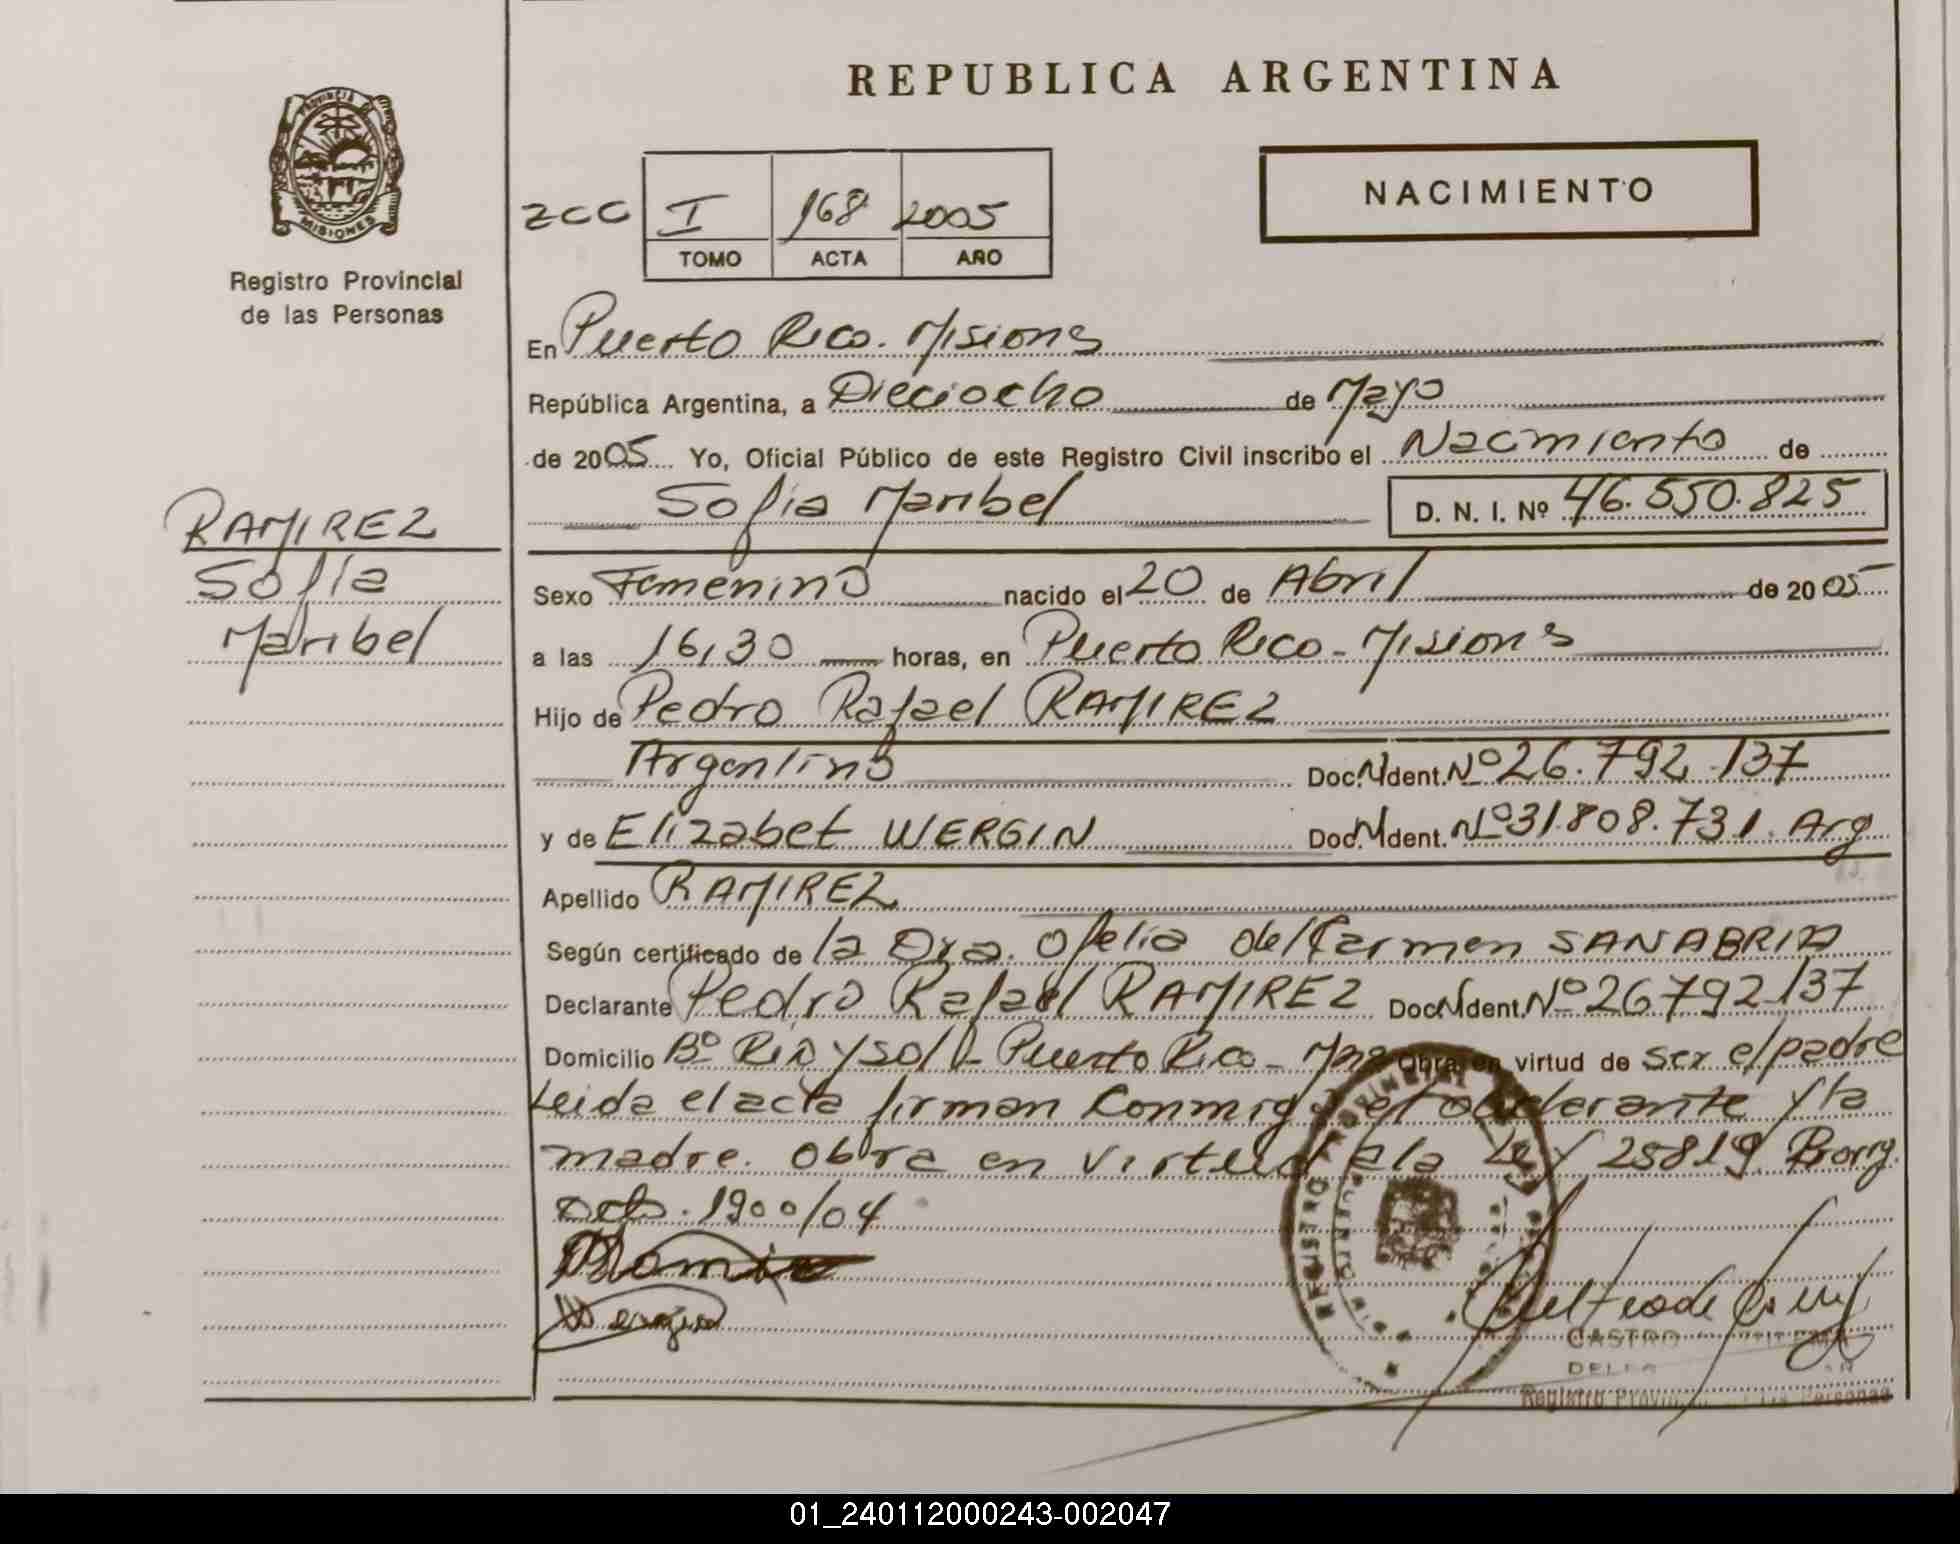 REPUBLICA ARGENTINA
PROVINCIA DE
MISIONES
Registro Provincial
de las Personas
NACIMIENTO
2CC I 168 2005
TOMO ACTA AÑO
En Puerto Rico. Misiones
República Argentina, a Dieciocho de Mayo
de 2005 Yo, Oficial Público de este Registro Civil inscribo el Nacimiento de
Sofia Maribel D. N. I. Nº 46.550.825
RAMIREZ
Sofía
Maribel
Sexo Femenino nacido el 20 de Abril de 2005
a las 16,30 horas, en Puerto Rico - Misiones
Hijo de Pedro Rafael RAMIREZ
Argentino Doc. Ident. Nº 26.792.137
y de Elizabet WERGIN Doc. Ident. Nº 31.808.731. Arg
Apellido RAMIREZ
Según certificado de la Dra. Ofelia del Carmen SANABRIA
Declarante Pedro Rafael RAMIREZ Doc. Ident. Nº 26792137
Domicilio Bº y sol - Puerto Rico - Mnes Obra en virtud de ser el padre
Leida el acta firman Conmigo el declarante y la
madre. Obra en virtud a la Ley 25819
Dcto. 1900/04
Wergin
REGISTRO PROVINCIAL
CASTRO
Registro Personas
01_240112000243-002047